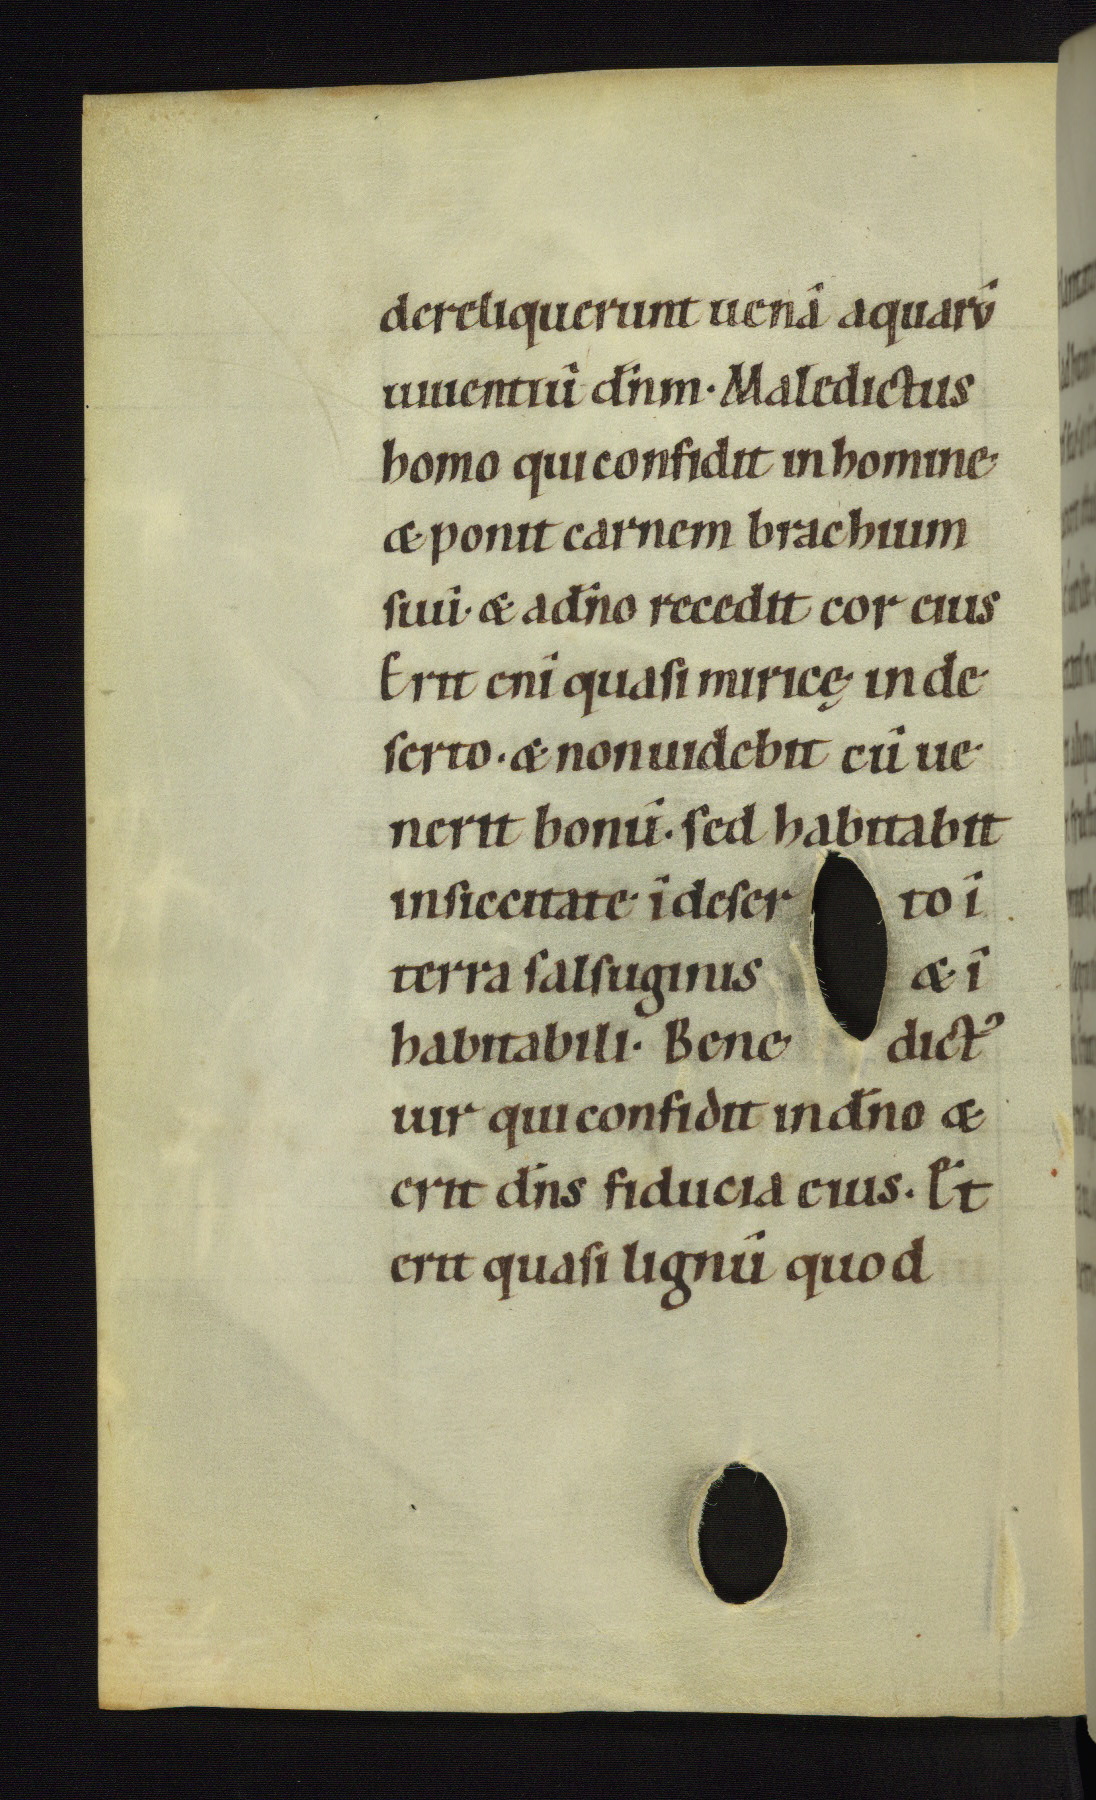 dereliquerunt uenā aquarū
uiuentiū dn̄m. Maledictus
homo qui confidit in homine
& ponit carnem brachium
suū. & a dn̄o recedit cor eius
Erit enī quasi miricę in de
serto. & non uidebit cū ue
nerit bonū. sed habitabit
in siccitate ī deser to ī
terra salsuginis & ī
habitabili. Bene dictꝰ
uir qui confidit in dn̄o &
erit dn̄s fiducia eius. Et
erit quasi lignū quod